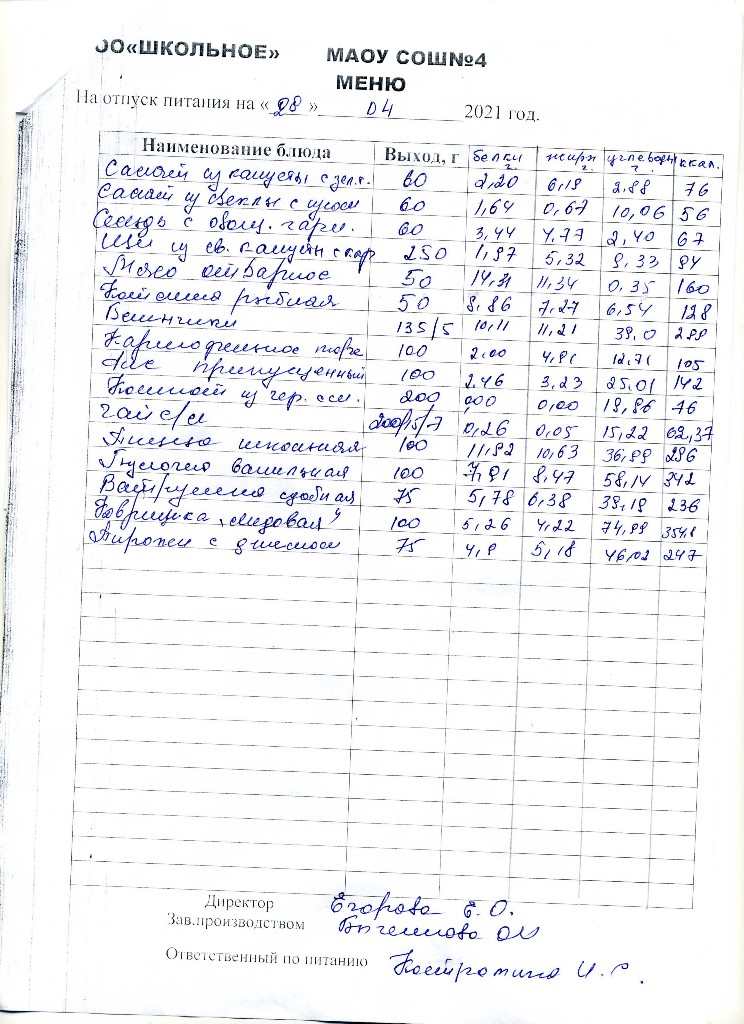 ОО«ШКОЛЬНОЕ» МАОУ СОШ№4
МЕНЮ
На отпуск питания на « 28 » 04 2021 год.
Наименование блюда Выход, г белки г. жиры г. углеводы г. ккал.
Салат из капусты с зел.г. 60 2,20 6,18 2,88 76
Салат из свеклы с изюм 60 1,64 0,67 10,06 56
Сельдь с овощ. гарн. 60 3,44 4,77 2,40 67
Щи из св. капусты с кар 250 1,97 5,32 8,33 84
Мясо отварное 50 14,31 11,34 0,35 160
Котлета рыбная 50 8,86 7,27 6,54 128
Блинчики 135/5 10,11 11,21 39,0 299
Картофельное пюре 100 2.00 4,81 12,71 105
Рис припущенный 100 2,46 3,23 25,01 142
Компот из чер. см. 200 0,00 0,00 19,86 76
Чай с/л 200/15/7 0,26 0,05 15,22 62,37
Пицца школьная 100 11,82 10,63 36,99 296
Булочка ванильная 100 7,91 8,47 58,14 342
Ватрушка сдобная 75 5,78 6,38 39,18 236
Коврижка „медовая" 100 5,26 4,22 74,99 354,8
Пирожок с джемом 75 4,9 5,18 46,02 247
Директор Егорова Е.О.
Зав.производством
Ответственный по питанию Костромина И.С.